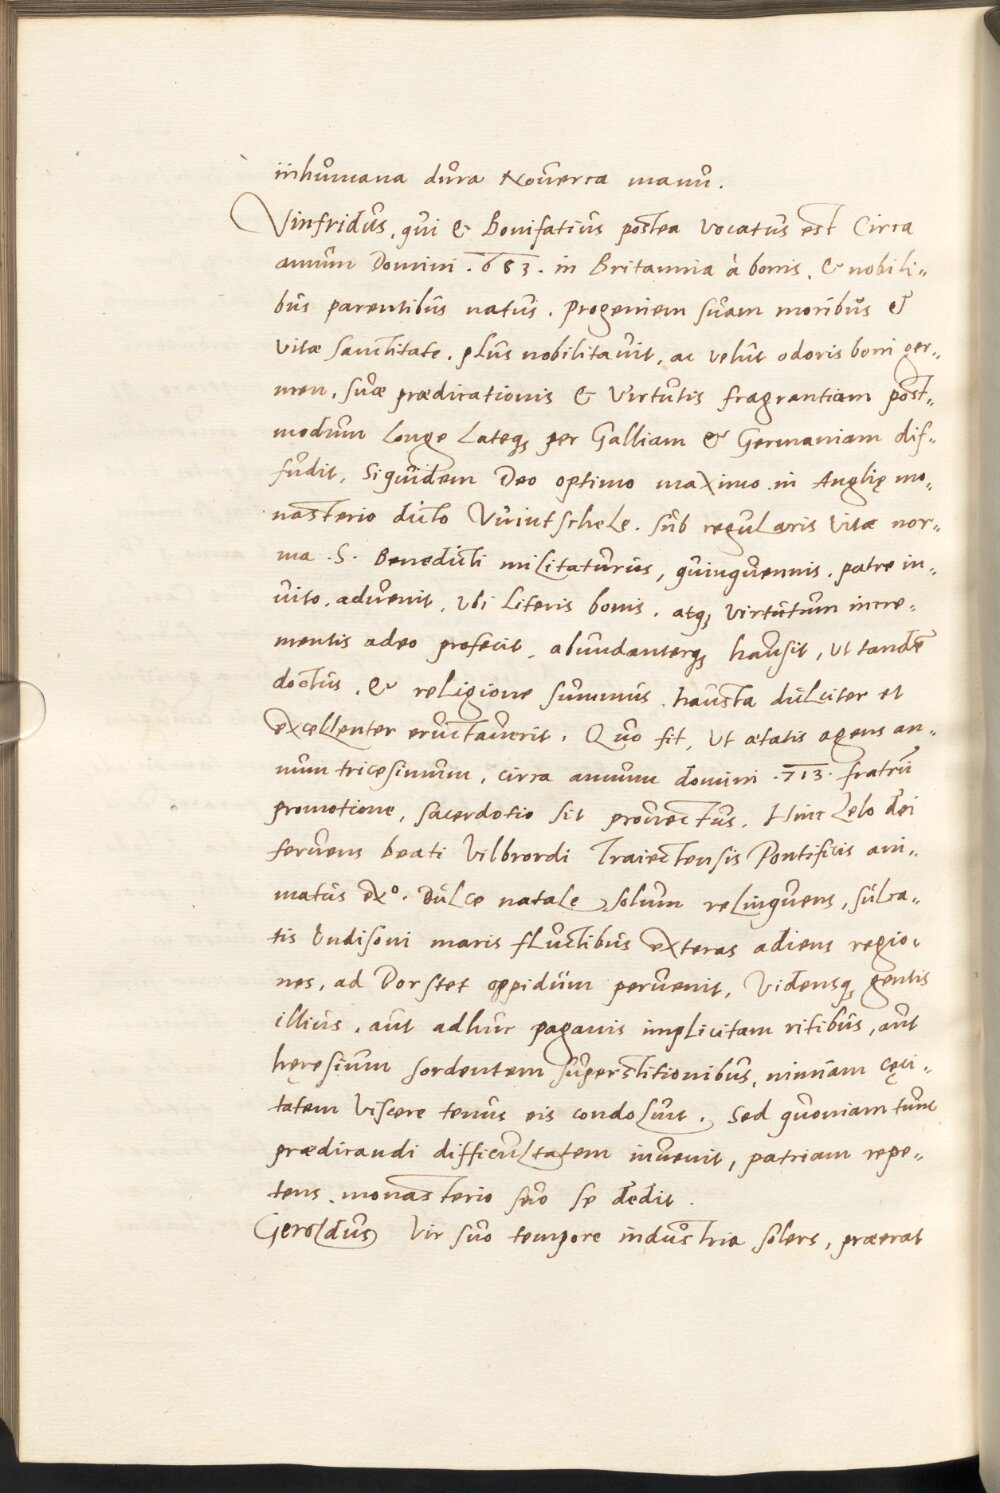 inhumana dura Noverca manu.
Vinfridus, qui & Bonifatius postea vocatus est Circa
annum Domini . 683 . in Britannia à bonis, & nobili-
bus parentibus natus. Progeniem suam moribus &
vitæ sanctitate, plus nobilitavit, ac velut odoris boni ger-
men, suæ prædicationis & Virtutis fragrantiam post-
modum Longe Lateq; per Galliam & Germaniam dif-
fudit, Siquidem Deo optimo maximo in Anglię mo-
nasterio dicto Vuintschele, sub regularis Vitæ nor-
ma .S. Benedicti militaturus, quinquennis, patre in-
vito, advenit, Vbi Literis bonis, atq; virtutum incre-
mentis adeo profecit, abundanterq; hausit, ut tandē
doctus, & religione summus, hausta dulciter et
excellenter eructaverit. Quo fit, ut ætatis agens an-
num tricesimum, circa annum domini .713. fratrū
promotione, sacerdotio sit provectus. Hinc Zelo dei
fervens beati Vilbrordi Traiectensis Pontificis ani-
matus exº. Dulce natale solum relinquens, sulca-
tis Undisoni maris fluctibus exteras adiens regio-
nes, ad Dorstet oppidum pervenit, Vidensq; gentis
illius, aut adhuc paganis implicitam ritibus, aut
hęresium sordentem superstitionibus, nimiam cęci-
tatem viscere tenus eis condoluit. Sed quoniam tunc
prædicandi difficultatem invenit, patriam repe-
tens, monasterio suo se dedit.
Geroldus Vir suo tempore industria solers, præerat